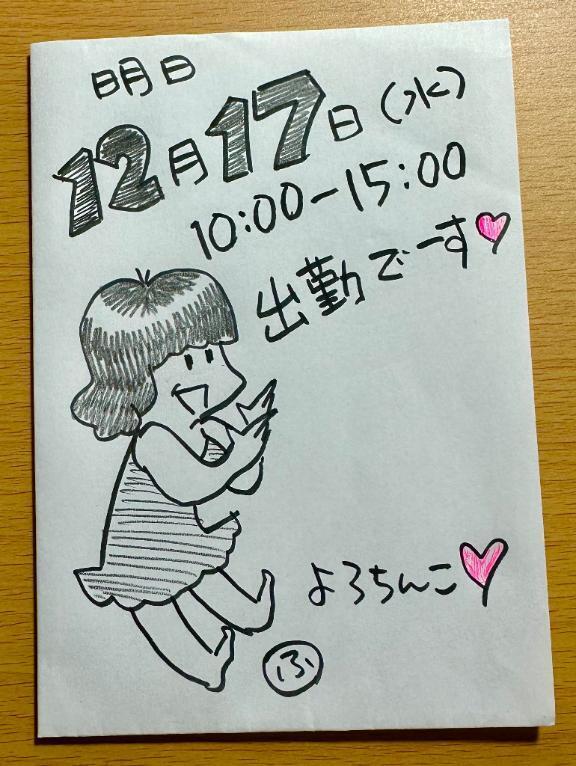 明日
12月17日(水)
10:00-15:00
出勤でーす♥
よろちんこ♥
ふ